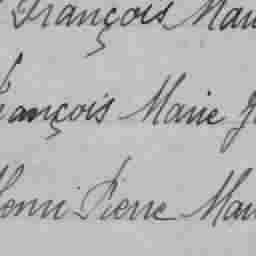 François Mau
François Marie J
Henri Pierre Mau